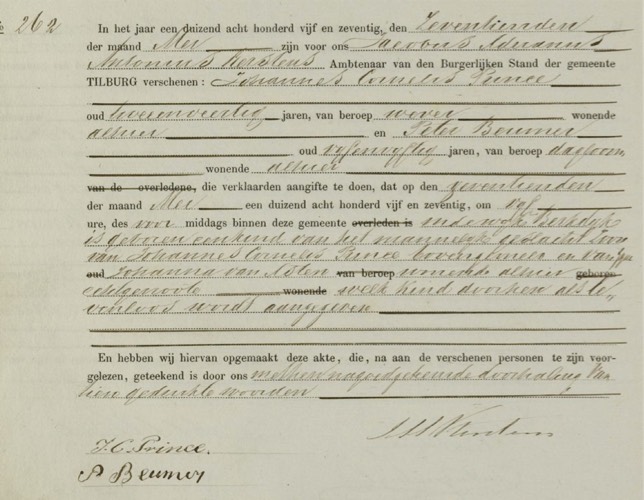 № 262 In het jaar een duizend acht honderd vijf en zeventig, den Zeventienden
der maand Mei zijn voor ons Jacobus Adrianus
Antonius Kerstens Ambtenaar van den Burgerlijken Stand der gemeente
TILBURG verschenen: Johannes Cornelis Prince
oud tweeenveertig jaren, van beroep wever wonende
alhier en Peter Beumer
oud vijfenvijftig jaren, van beroep dagloon,
wonende alhier
van de overledene, die verklaarden aangifte te doen, dat op den zeventienden
der maand Mei een duizend acht honderd vijf en zeventig, om vijf
ure, des voor middags binnen deze gemeente overleden is in de wijk Berkdijk
is geboren een kind van het mannelijk geslacht zoon
van Johannes Cornelis Prince bovengenoemd en van zijne
oud Johanna van Asten van beroep wonende alhier geboren
echtgenoote wonende welk kind door hen als le-
venloos wordt aangegeven
En hebben wij hiervan opgemaakt deze akte, die, na aan de verschenen personen te zijn voor-
gelezen, geteekend is door ons met hen na goedgekeurde doorhaling van
tien gedrukte woorden
J. C. Prince.
P Beumer